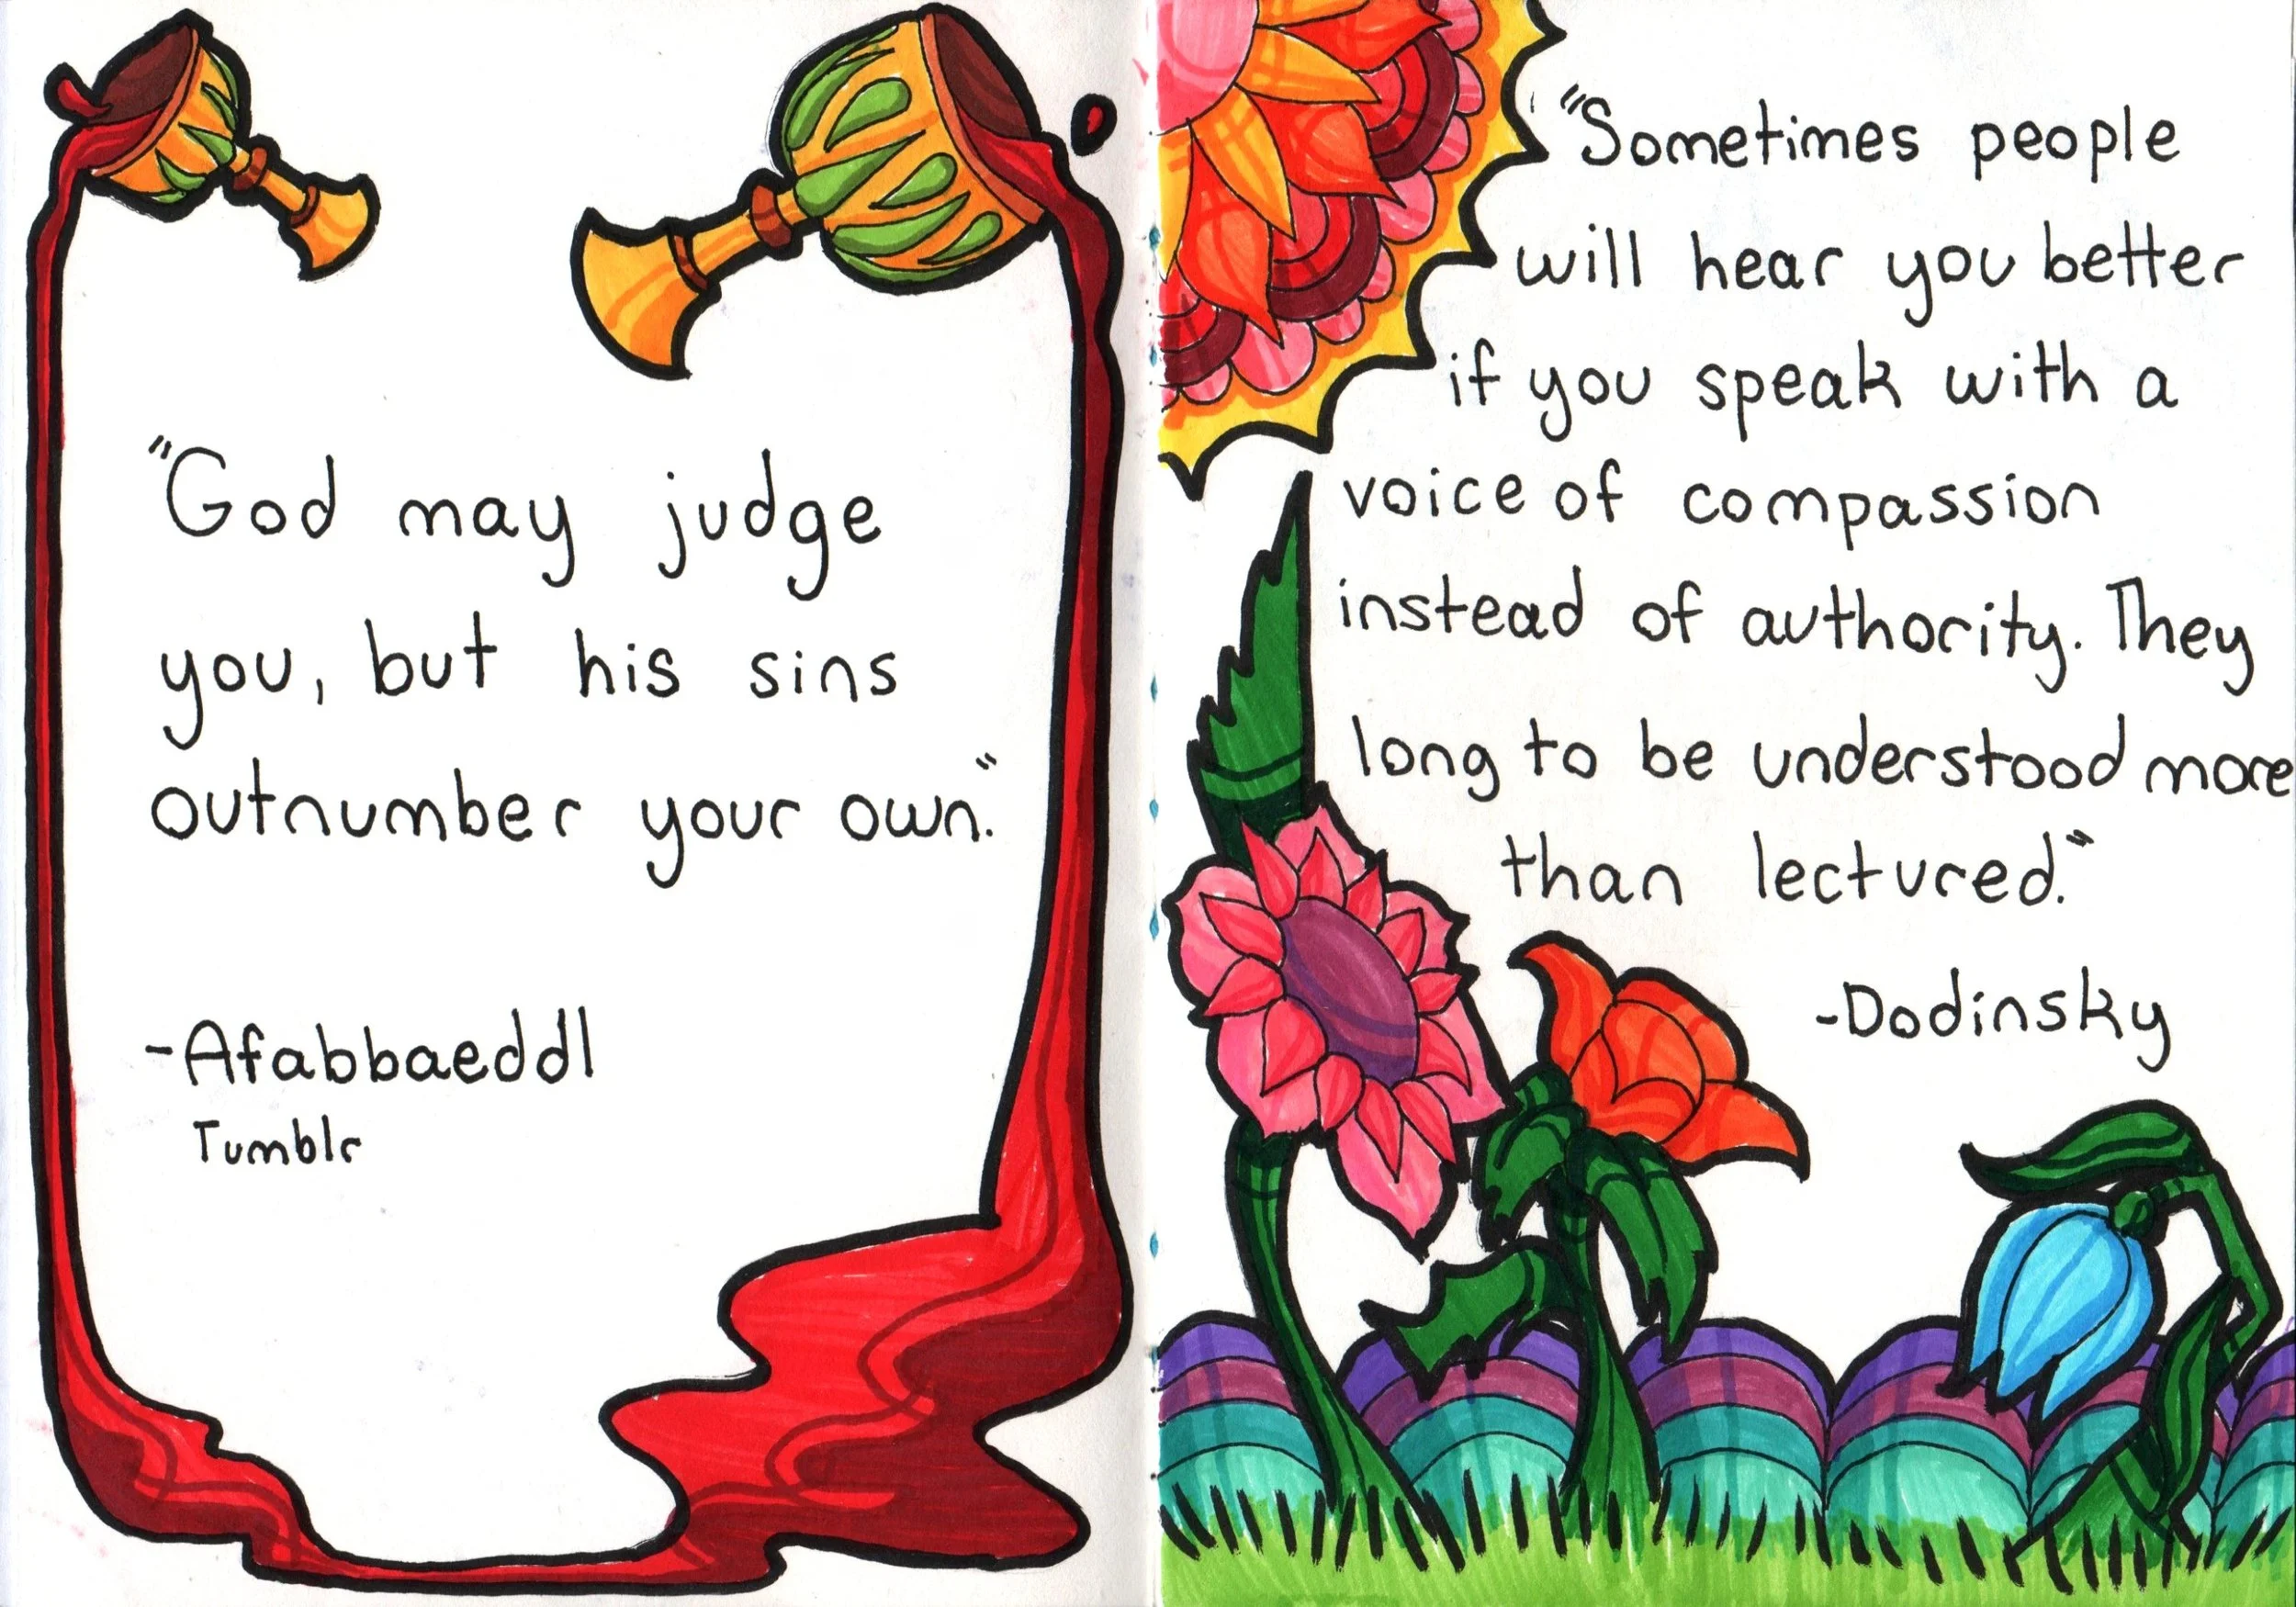 "God may judge
you, but his sins
outnumber your own."
-Afabbaeddl
Tumblr
"Sometimes people
will hear you better
if you speak with a
voice of compassion
instead of authority. They
long to be understood more
than lectured."
-Dodinsky